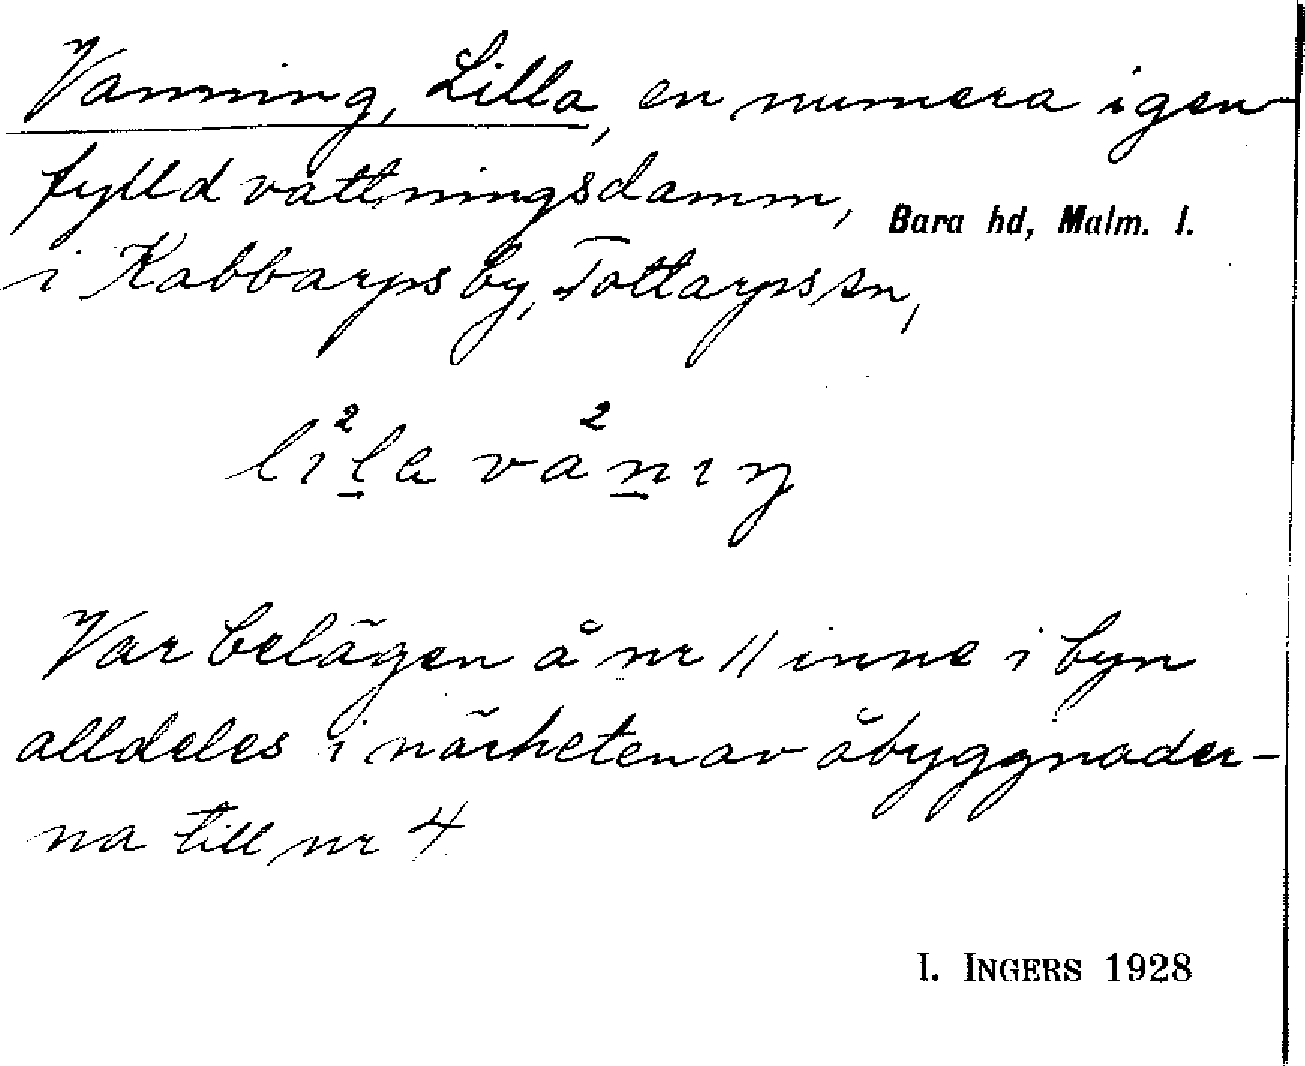 Vanning, Lilla, en numera igen
fylld vattningsdamm,
Bara hd, Malm. l.
i Kabbarps by, Tottarps sn,
li²l̲a va²n̲ıŋ
Var belägen å nr 11 inne i byn
alldeles i närheten av åbyggnader-
na till nr 4
I. INGERS 1928